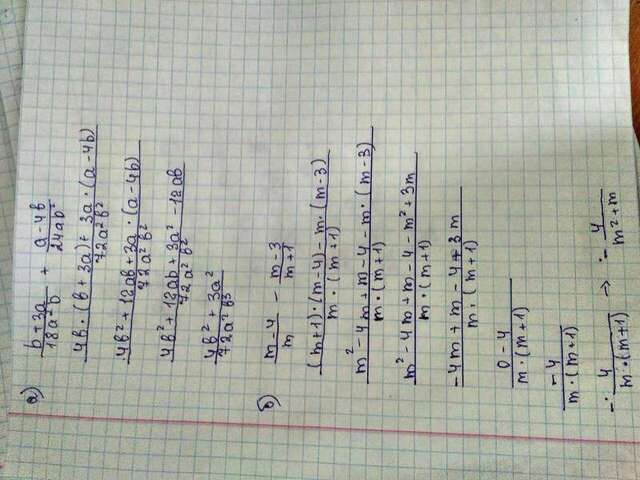 а) (b+3a)/(18a²b) + (a-4b)/(24ab²)
(4b·(b+3a)+3a·(a-4b))/(72a²b²)
(4b²+12ab+3a·(a-4b))/(72a²b²)
(4b²+12ab+3a²-12ab)/(72a²b²)
(4b²+3a²)/(72a²b³)
б) (m-4)/m - (m-3)/(m+1)
((m+1)·(m-4)-m·(m-3))/(m·(m+1))
(m²-4m+m-4-m·(m-3))/(m·(m+1))
(m²-4m+m-4-m²+3m)/(m·(m+1))
(-4m+m-4+3m)/(m·(m+1))
(0-4)/(m·(m+1))
(-4)/(m·(m+1))
-4/(m·(m+1)) → -4/(m²+m)